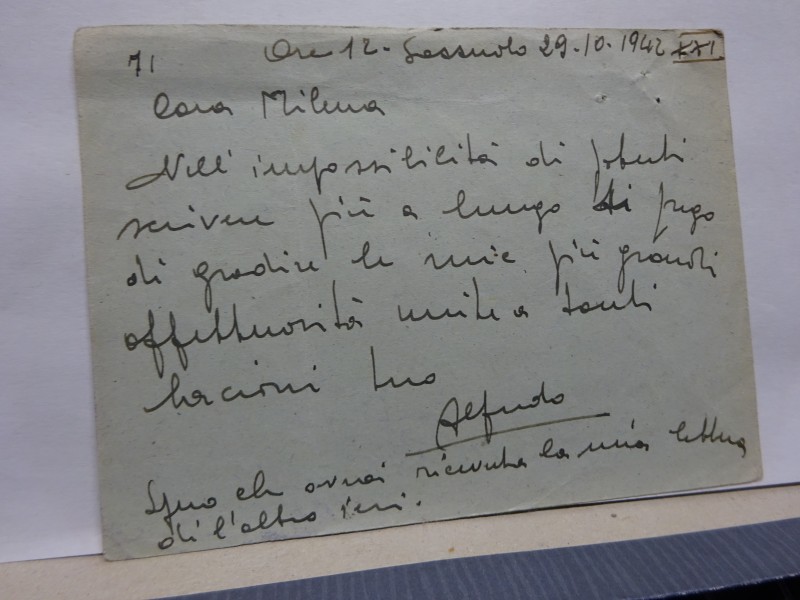 71
Ore 12 - Sassuolo 29.10.1942 XXI
Cara Milena
Nell'impossibilità di poterti
scrivere più a lungo ti prego
di gradire le mie più grandi
affettuosità unite a tanti
bacioni tuo
Alfredo
Spero che avrai ricevuta la mia lettera
di l'altro ieri.